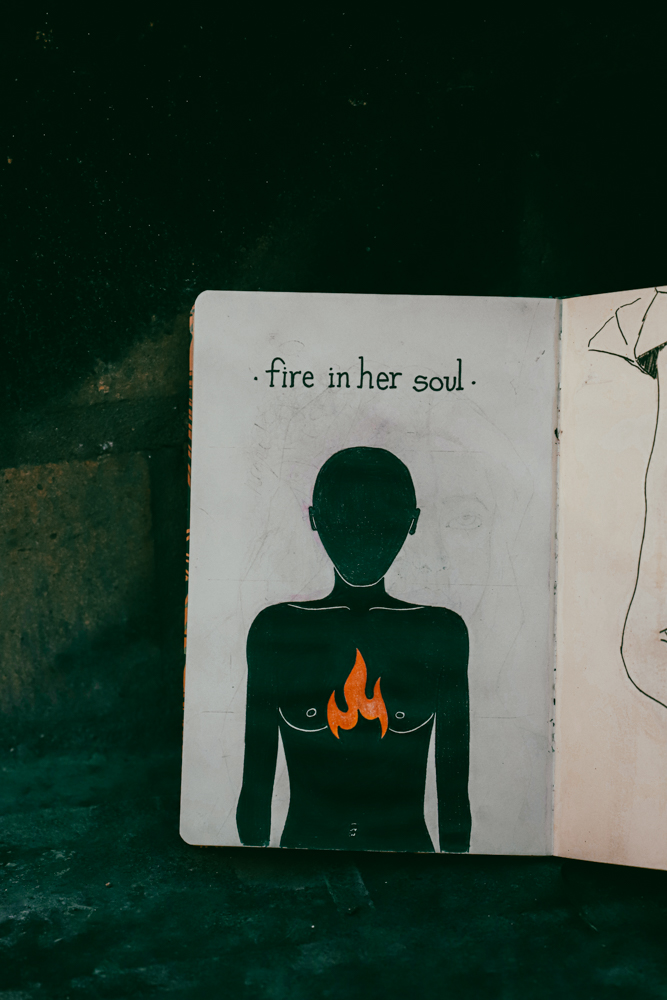 · fire in her soul ·